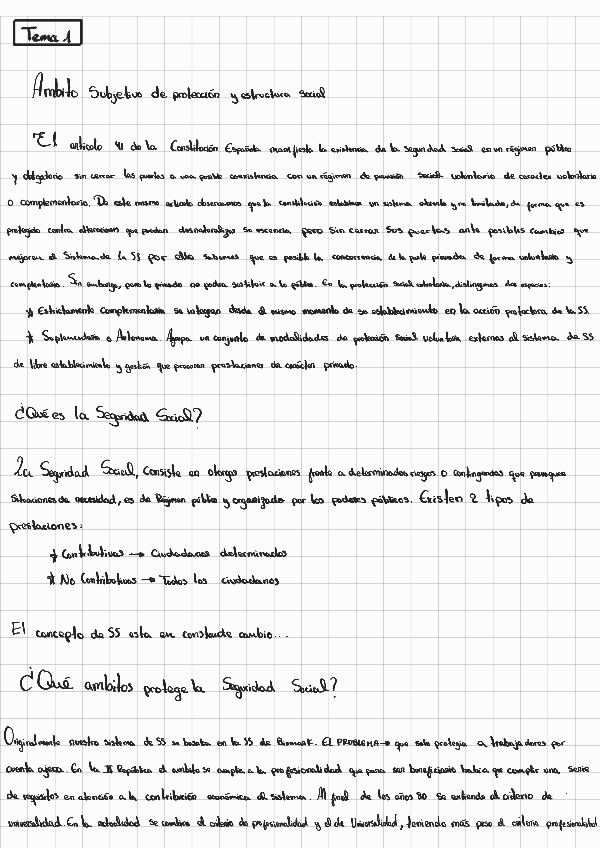 Tema 1
Ámbito Subjetivo de protección y estructura social
El artículo 41 de la Constitución Española manifiesta la existencia de la seguridad social en un régimen público
y obligatorio sin cerrar las puertas a una posible coexistencia con un régimen de previsión social voluntario de caracter voluntario
o complementario. De este mismo artículo observamos que la constitución establece un sistema abierto y no limitado, de forma que es
protegido contra alteraciones que puedan desnaturalizar su esencia, pero sin cerrar sus puertas ante posibles cambios que
mejoren el Sistema de la SS por ello sabemos que es posible la concurrencia de la parte privada de forma voluntaria y
complentaria. Sin embargo, pero lo privado no podra sustituir a lo público. En la protección social voluntaria, distinguimos dos especies:
* Estrictamente complementaria se integran desde el mismo momento de su establecimiento en la acción protectora de la SS.
* Suplementaria o Autonoma. Agrupa un conjunto de modalidades de protección social voluntaria externas al sistema de SS
de libre establecimiento y gestión que procuran prestaciones de carácter privado.
¿Qué es la Seguridad Social?
La Seguridad Social, consiste en otorgar prestaciones frente a determinados riesgos o contingencias que
situaciones de necesidad, es de Régimen público y organizado por los poderes públicos. Existen 2 tipos de
prestaciones:
* Contributivas → Ciudadanos determinados
* No Contributivas → Todos los ciudadanos
El concepto de SS esta en constante cambio...
¿Qué ambitos protege la Seguridad Social?
Originalmente nuestro sistema de SS se basaba en la SS de Bismark. El PROBLEMA → que solo protegia a trabajadores por
cuenta ajena. En la II República el ambito se amplia a la profesionalidad que para ser beneficiario habia que cumplir una serie
de requisitos en atención a la contribución económica al sistema. Al final de los años 80 se extiende el criterio de
universalidad. En la actualidad se combina el criterio de profesionalidad y el de Universalidad, teniendo más peso el criterio profesionalidad